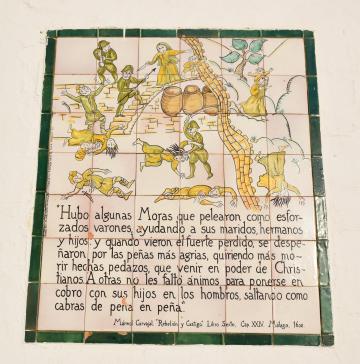 "Hubo algunas Moras que pelearon como esfor-
zados varones, ayudando a sus maridos, hermanos
y hijos: y quando vieron el fuerte perdido, se despe-
ñaron por las peñas más agrias, quiriendo más mo-
rir hechas pedazos, que venir en poder de Chris-
tianos. A otras no les faltó ánimos para ponerse en
cobro con sus hijos en los hombros, saltando como
cabras de peña en peña".
Mármol Carvajal, "Rebelión y Castigo" Libro Sexto. Cap. XXIV. Málaga, 1600.